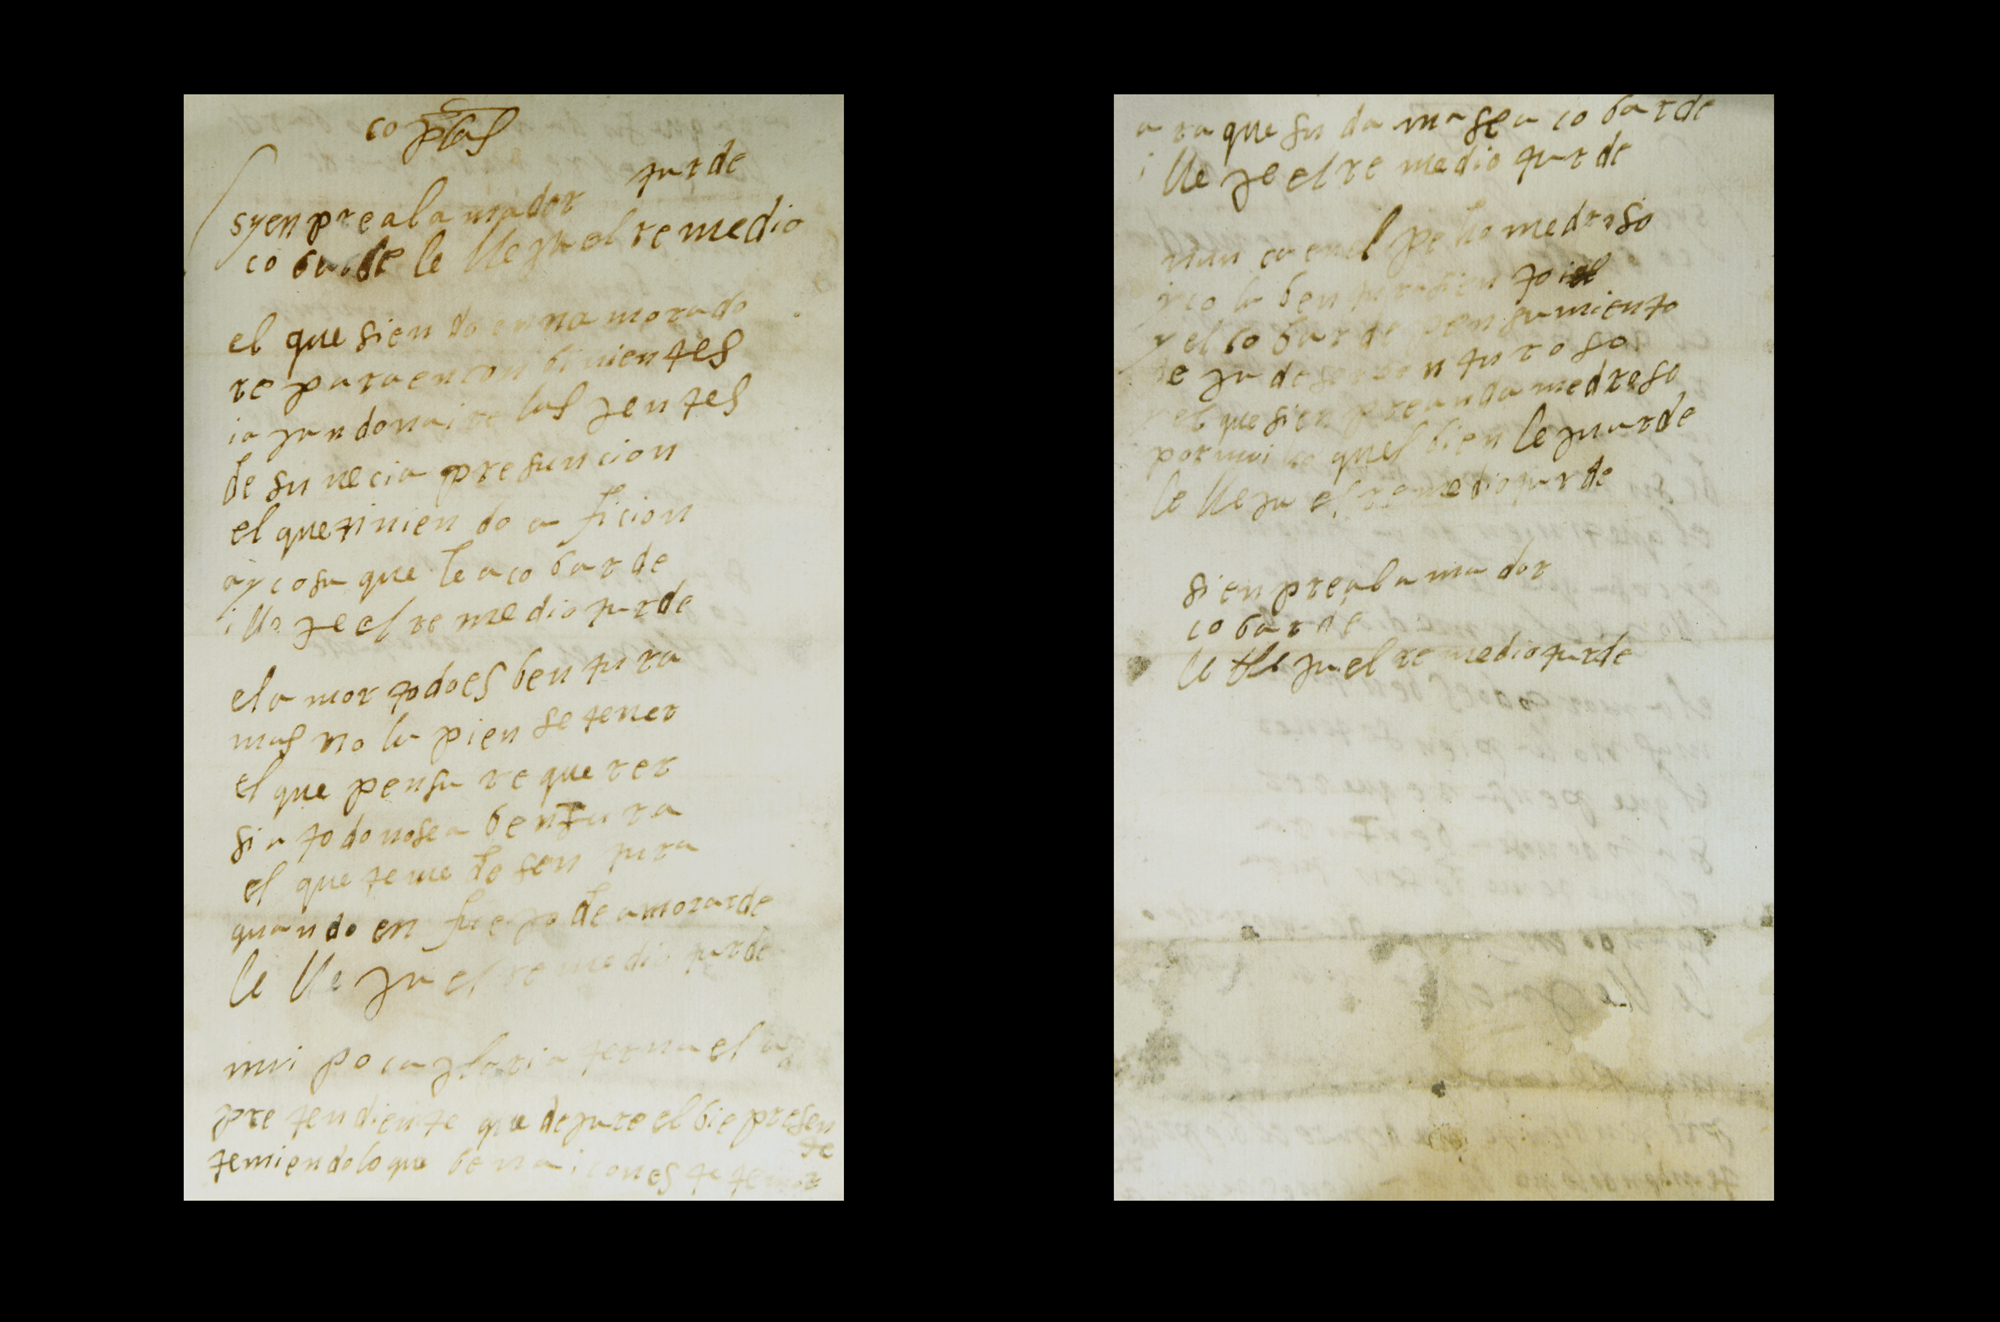 coplas
syenpre al amador tarde
cobarde le llega el remedio
el que siendo ennamorado
repara en conbinientes
ia gan donaire las jentes
de su necia presuncion
el que tiniendo aficion
ay cosa que le acobarde
i llege el remedio tarde
el amor todo es bentura
mas no la piense tener
el que pensare querer
si a todo no se abentura
el que teme de sen tura
quando en fuego de amor arde
le llega el remedio tarde
mui poca gloria terna el
pretendiente que dejare el bie presen
te
temiendo lo que
ara que su da mas ea cobarde
i llege el remedio tarde
nunca en el pecho medroso
la bentura
y el cobarde pensamiento
desbenturoso
el que sienpre anda medroso
por mui que el bien le guarde
le llega el remedio tarde
sienpre al amador
cobarde
le llega el remedio tarde